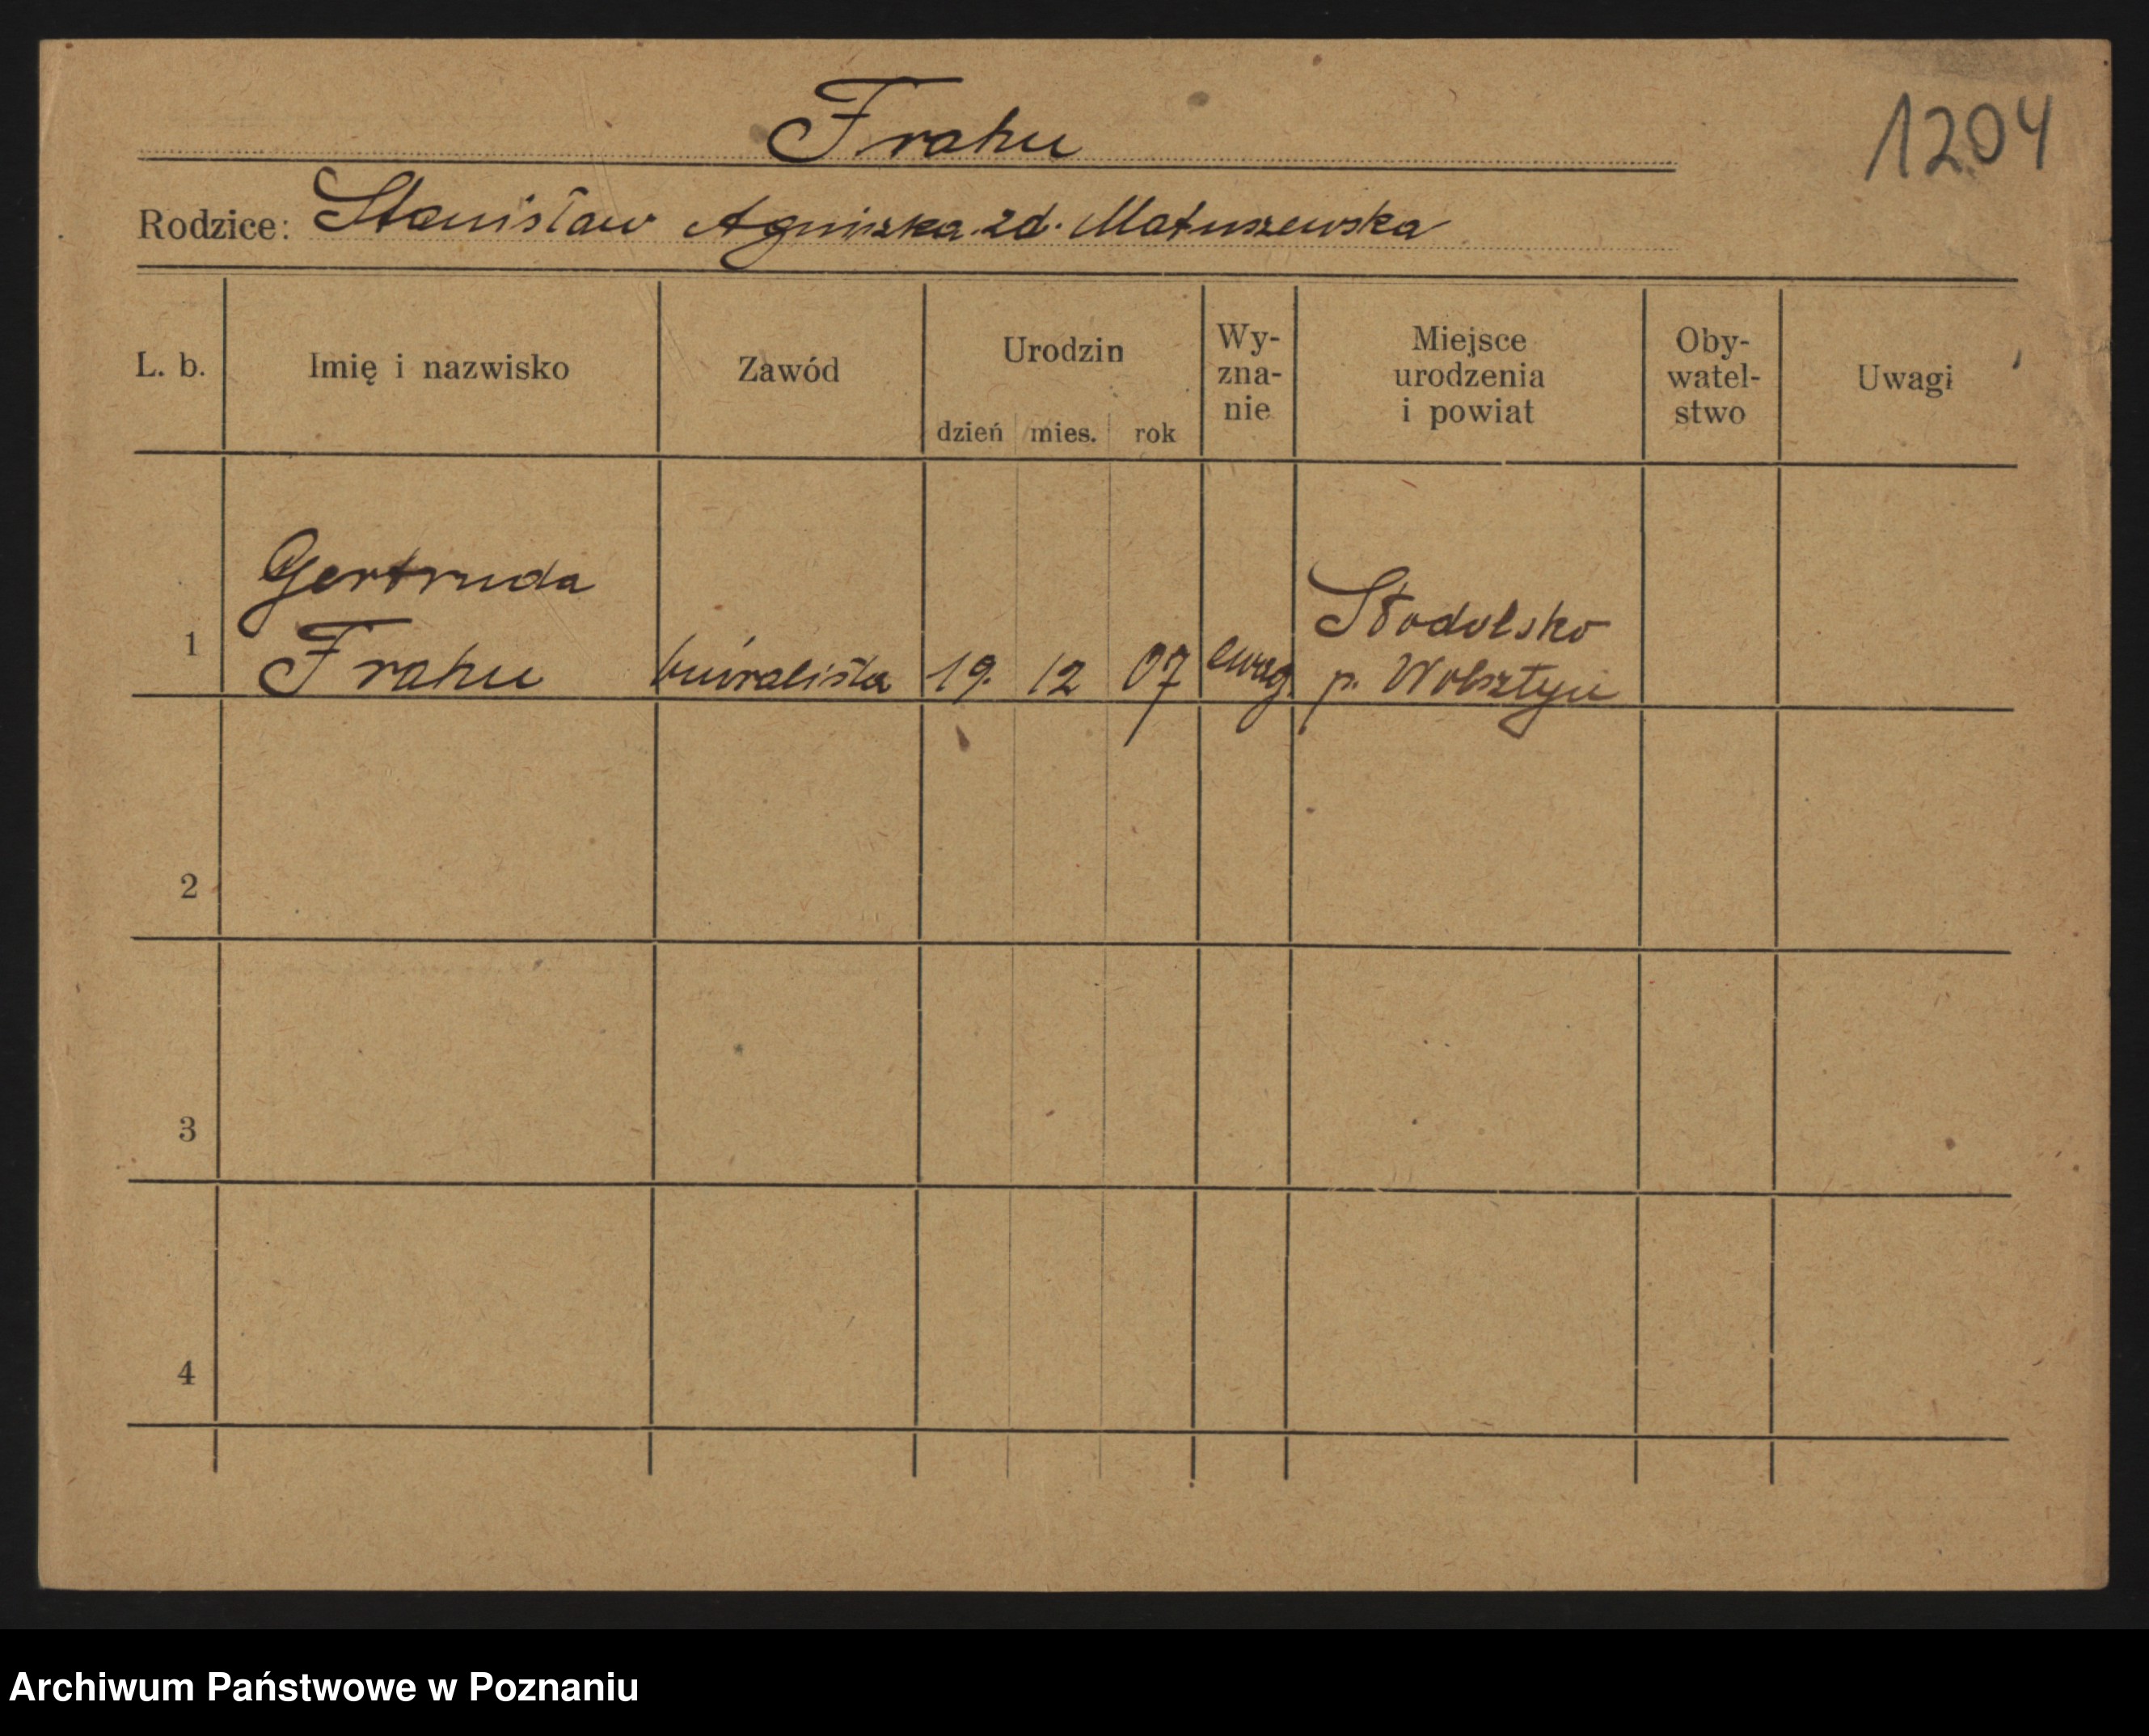 Frahn
1204
Rodzice: Stanisław Agniszka zd. Matuszewska
L. b. Imię i nazwisko Zawód Urodzin dzień mies. rok Wy-zna-nie Miejsce urodzenia i powiat Oby-watel-stwo Uwagi
Gertruda
1 Frahn biuralista 19. 12 07 ewag. Stodolsko
p. Wolsztyn
2
3
4
Archiwum Państwowe w Poznaniu